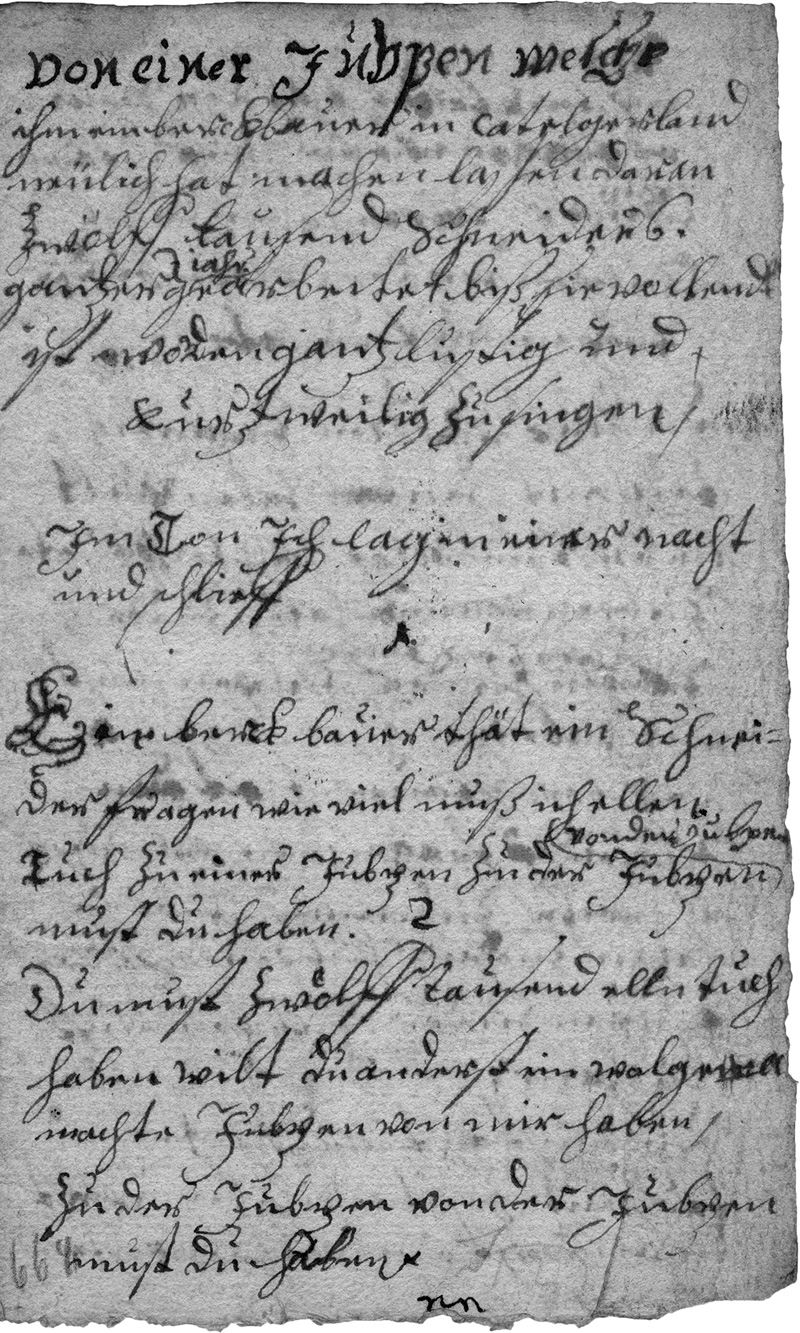 Von einer Jubpen welche
ihm ein berckbauer in Catelgersland
neülich hat machen lassen daran
Zwölff tausend Schneider 6.
jahr
gantzer gearbeitet biß sie vollend
ist worden gantz lustig und
Kurtzweilig Zu singen /
Im Ton Ich lag in einer nacht
und schlieff
1.
Ein berckbauer thät ein Schnei=
der fragen wie viel muß ich ellen
von der Jubpen
Tuch Zu einer Jubpen Zu der Jubpen
must du haben. 2
Du must Zwölff tausend elln tuch
haben wilt du anderst ein wolge
machte Jubpen von mir haben /
Zu der Jubpen von der Jubpen
must du haben